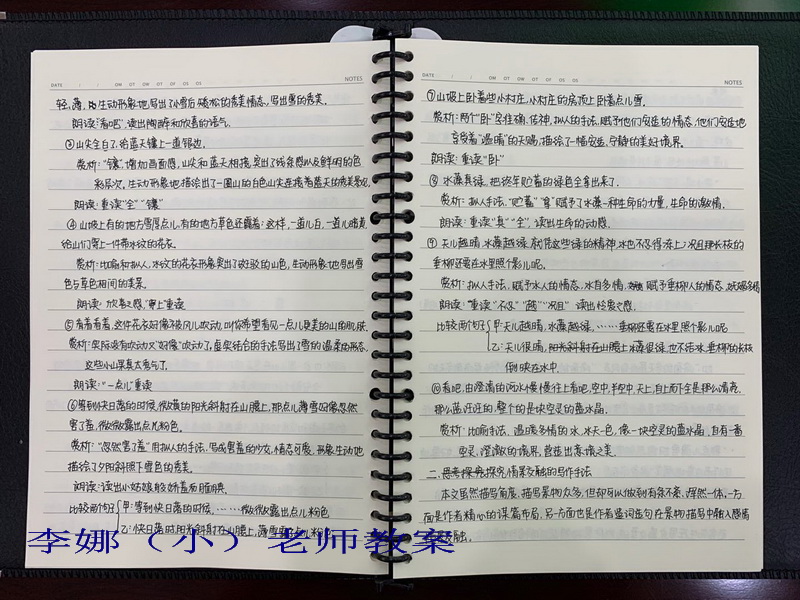 DATE / / OM OT OW OT OF OS OS NOTES
轻、薄,生动形象地写出了小雪后矮松的秀美情态,写出雪的秀美。
朗读:"看吧",读出陶醉和欣喜的语气。
③山尖全白了,给蓝天镶上一道银边。
赏析:"镶",增加画面感,山尖和蓝天相接,突出了线条感以及鲜明的色
彩层次。生动形象地描绘出了一圈山的白色山尖连接着蓝天的秀美景色。
朗读:重读"全""镶"
④山坡上有的地方雪厚点儿,有的地方草色还露着;这样,一道儿白,一道儿暗黄,
给山们穿上一件带水纹的花衣。
赏析:比喻和拟人,水纹的花衣形象突出了斑驳的山色,生动形象地写出雪
色与草色相间的美景。
朗读:欣喜之感,"穿上"重读
⑤看着看着,这件花衣好像被风儿吹动,叫你希望看见一点儿更美的山的肌肤。
赏析:实际没有吹动又"好像"吹动了,虚实结合的手法写出了雪的温柔的形态,
这些小山果真太秀气了。
朗读:"一点儿"重读
⑥等到快日落的时候,微黄的阳光斜射在山腰上,那点儿薄雪好像忽然
害了羞,微微露出点儿粉色。
赏析:"忽然害了羞"用拟人的手法,写成害羞的少女,情态可爱,形象生动地
描绘了夕阳斜照下雪色的秀美。
朗读:读出小姑娘般娇羞而腼腆。
比较两个句子 甲:等到快日落的时候,……微微露出点儿粉色
乙:快日落时,阳光斜射在山腰上,薄雪露出点儿粉
DATE / / OM OT OW OT OF OS OS NOTES
⑦山坡上卧着些小村庄,小村庄的房顶上卧着点儿雪。
赏析:两个"卧"字准确、传神,拟人的手法,赋予他们安适的情态,他们安适地
享受着"温晴"的天赐,描绘了一幅安适、宁静的美好境界。
朗读:重读"卧"
⑧水藻真绿,把终年贮蓄的绿色全拿出来了。
赏析:拟人手法,"贮蓄""拿"赋予了水藻一种生命的力量,生命的激情。
朗读:重读"真""全",读出生命的动感。
⑨天儿越晴,水藻越绿,就凭这些绿的精神,水也不忍得冻上;况且那长枝的
垂柳还要在水里照个影儿呢。
赏析:拟人手法,赋予水人的情态,水自多情,赋予垂柳人的情态,妩媚多情
朗读:"重读"不忍""越""况且"读出怜爱之感。
比较两个句子 甲:天儿越晴,水藻越绿,……垂柳还要在水里照个影儿呢
乙:天儿很晴,阳光斜射在山腰上水藻很绿,也不结冰,垂柳的长枝
倒映在水中
⑩看吧,由澄清的河水慢慢往上看吧,空中,半空中,天上,自上而下全是那么清亮,
那么蓝汪汪的,整个的是块空灵的蓝水晶。
赏析:比喻手法,温暖多情的水,水天一色,像一块空灵的蓝水晶,自有一番
空灵,澄澈的境界,营造出意境之美。
二、思考探究,探究情景交融的写作手法
本文虽然描写角度、描写景物众多,但却可以做到有条不紊、浑然一体。一方
面是作者精心的谋篇布局,另一方面也是作者遣词造句在景物描写中融入感情
交融。
李娜(小)老师教案